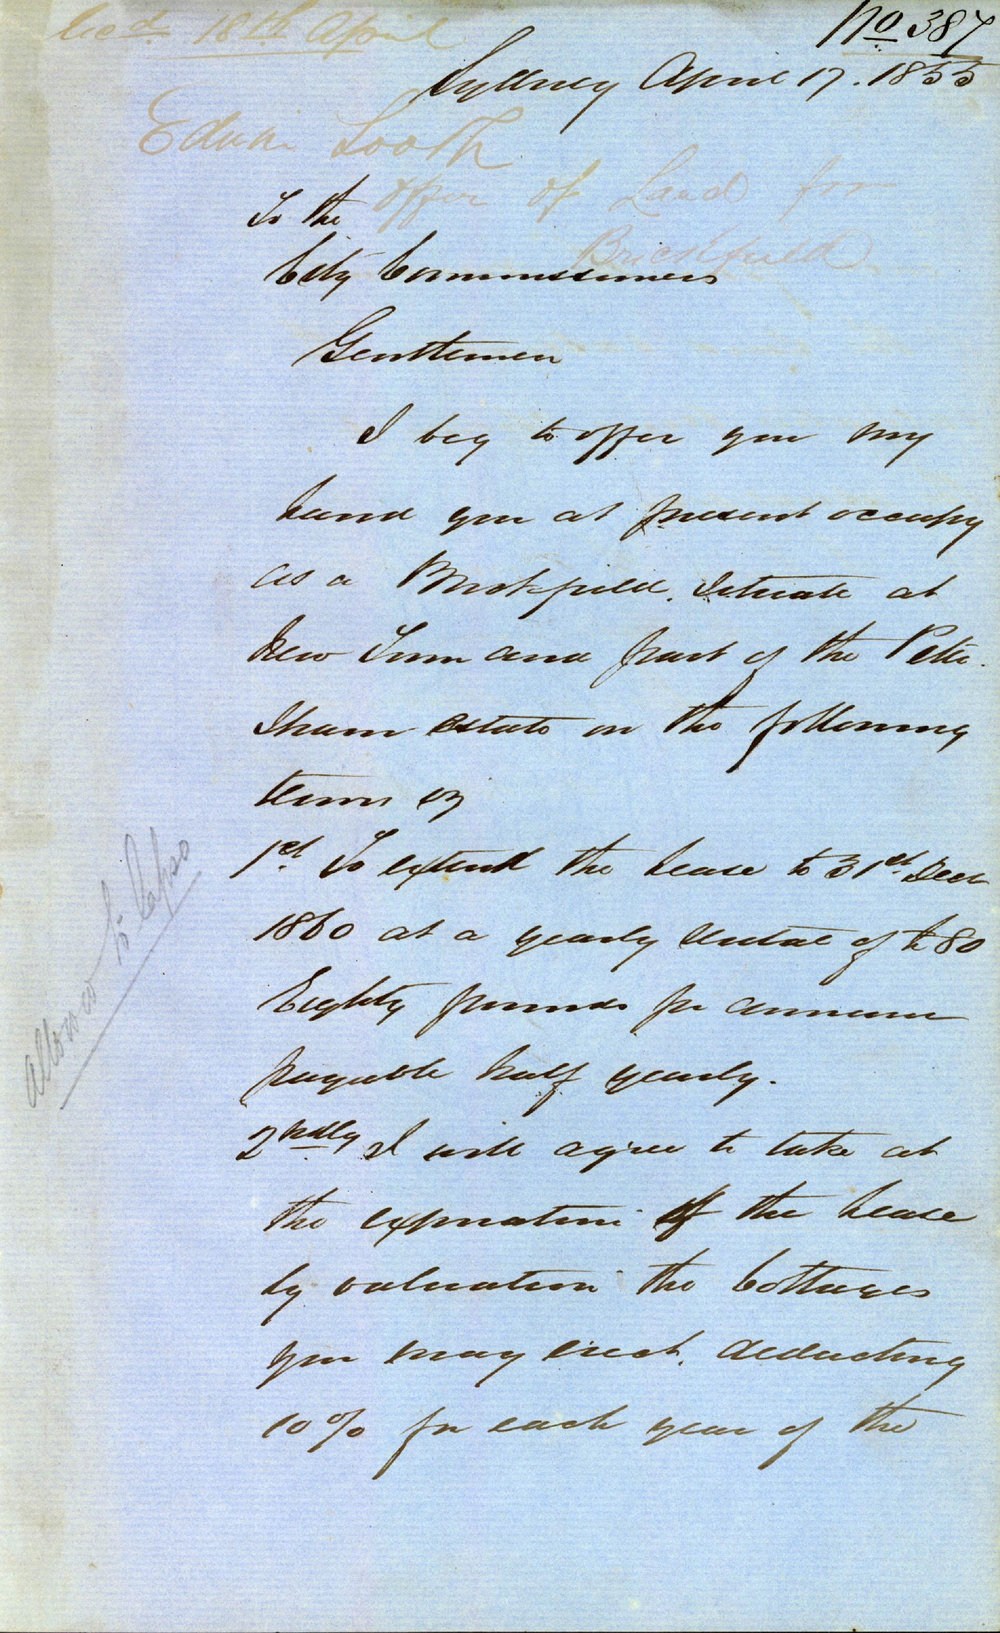 Recd. 18th April
No 387
Sydney April 17. 1855
Edwin Tooth
Offer of Land for
Brickfield
To the
City Commissioners
Gentlemen
I beg to offer you my
Land you at present occupy
as a Brickfield. Situate at
New Town and part of the Peter-
sham estate on the following
terms
1st. To extend the Lease to 31st. Decr
1860 at a yearly Rental of £80
Eighty pounds pr annum
payable half yearly.
2ndly I will agree to take at
the expiration of the Lease
by valuation the Cottages
you may erect. deducting
10% for each year of the
allowed to lapse